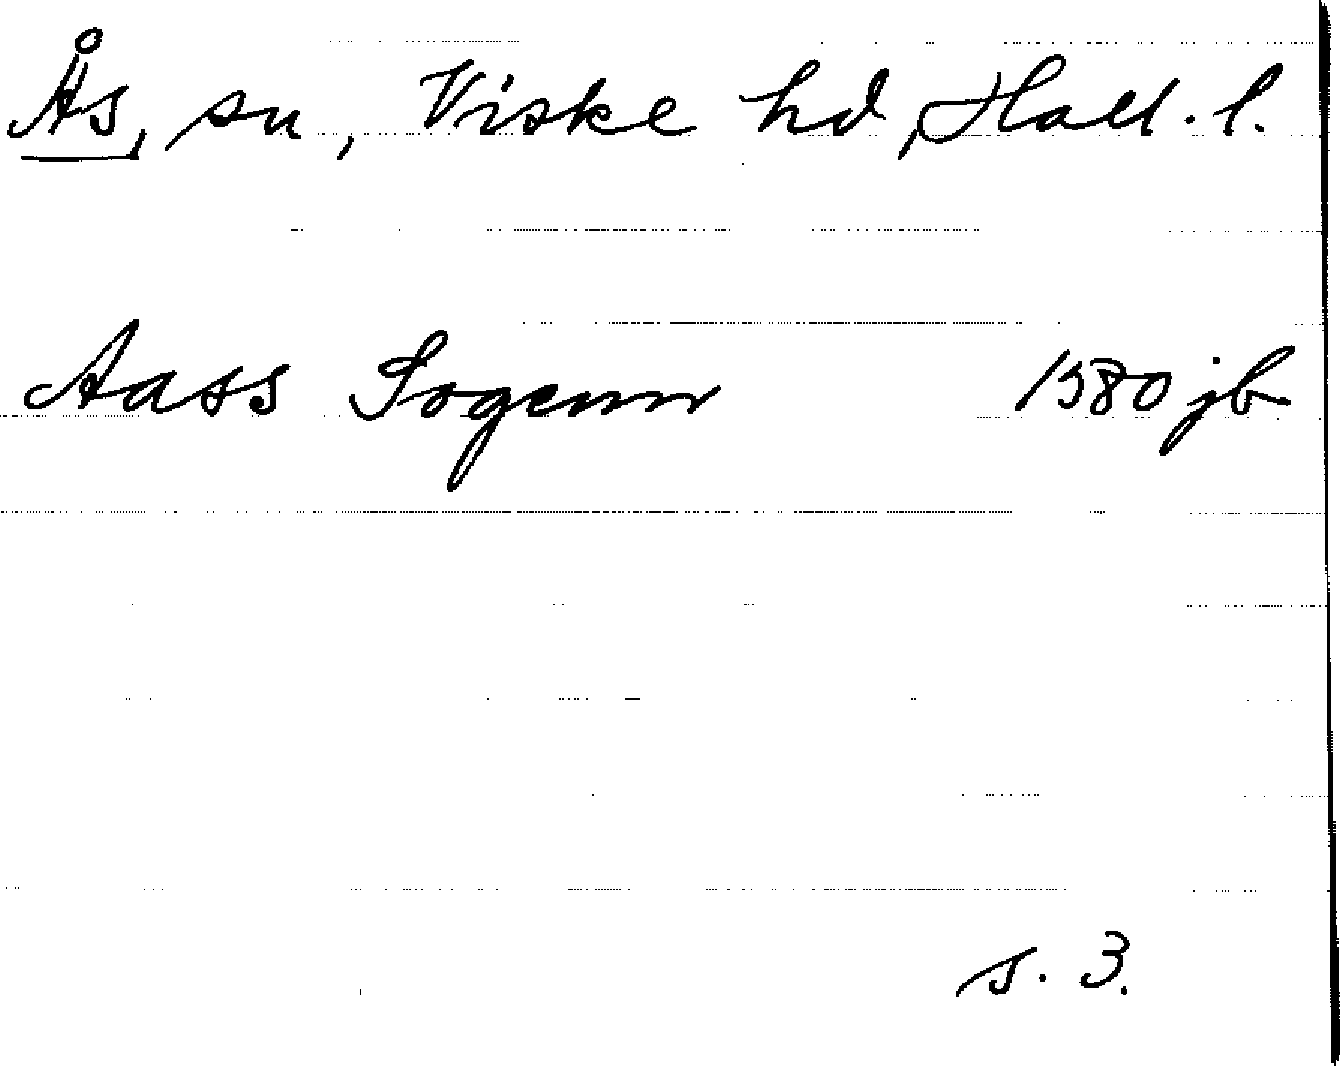 Ås, sn, Viske hd, Hall. l.
Aass Sogenn 1580 jb
s. 3.